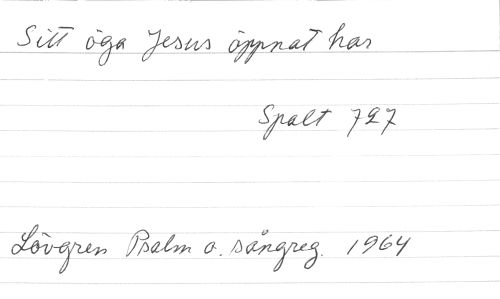 Sitt öga Jesus öppnat har
Spalt 727
Lövgren Psalm o. sångreg. 1964